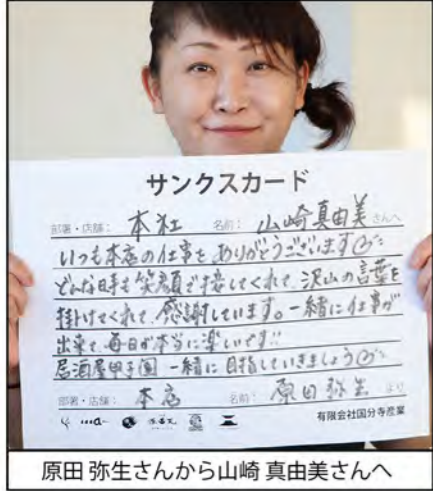 サンクスカード
部署・店舗： 本社 名前： 山崎真由美さんへ
いつも本店の仕事を ありがとうございます
どんな時も笑顔で接してくれて、沢山の言葉を
掛けてくれて、感謝しています。一緒に仕事が
出来て、毎日が本当に楽しいです!!
居酒屋甲子園 一緒に目指していきましょう
部署・店舗： 本店 名前： 原田弥生より
有限会社国分寺産業
原田 弥生さんから山崎 真由美さんへ